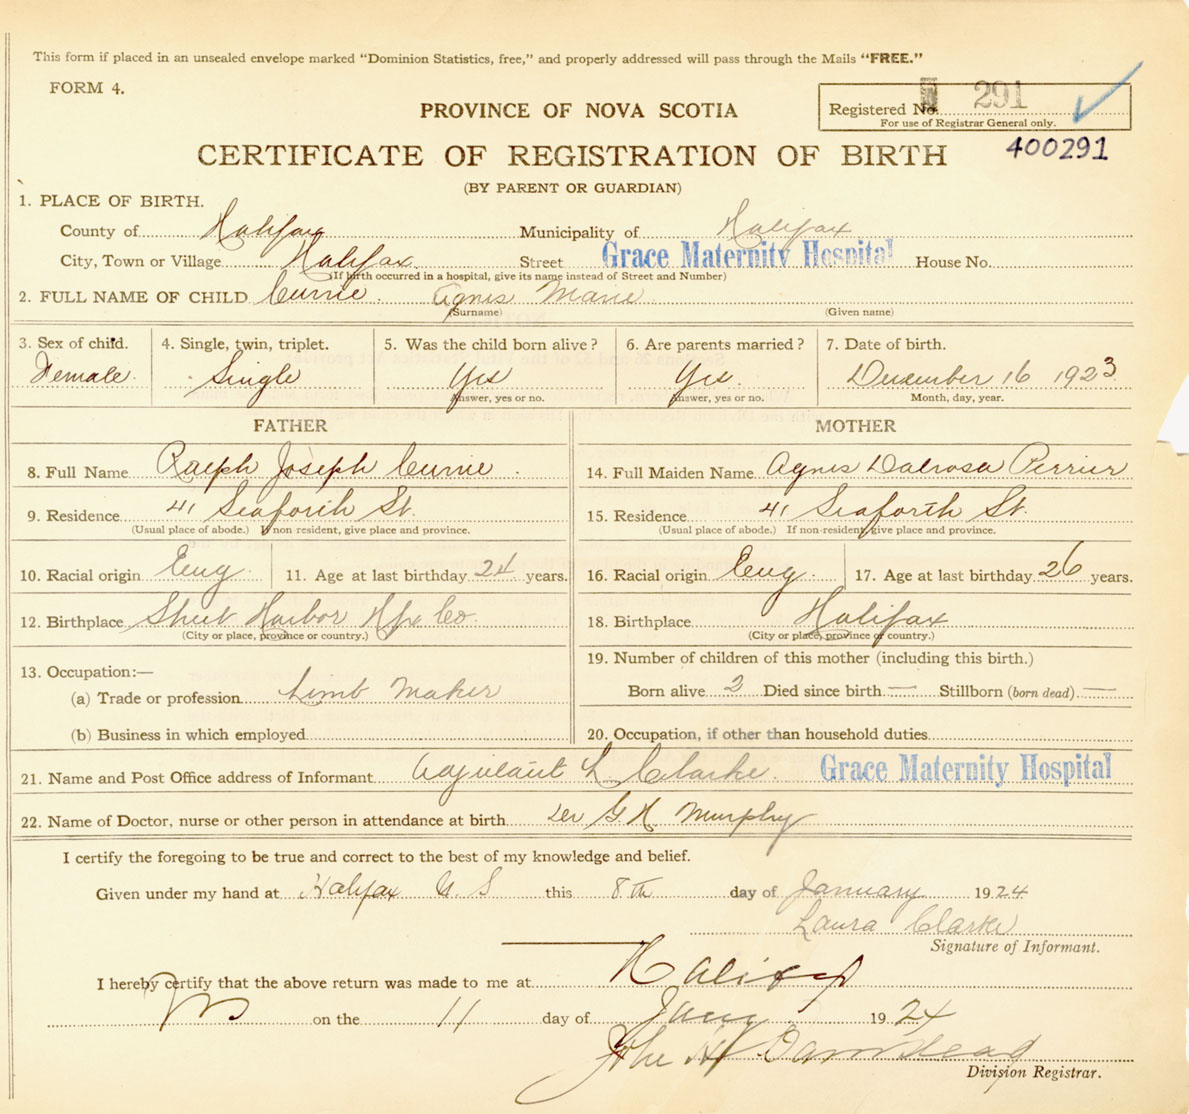 This form if placed in an unsealed envelope marked “Dominion Statistics, free,” and properly addressed will pass through the Mails “FREE.”
FORM 4.
Registered No. 291
For use of Registrar General only.
PROVINCE OF NOVA SCOTIA
CERTIFICATE OF REGISTRATION OF BIRTH 400291
(BY PARENT OR GUARDIAN)
1. PLACE OF BIRTH.
County of Halifax Municipality of Halifax
City, Town or Village Halifax Street Grace Maternity Hospital House No.
(If birth occurred in a hospital, give its name instead of Street and Number)
2. FULL NAME OF CHILD Currie Agnes Marie
(Surname) (Given name)
3. Sex of child. 4. Single, twin, triplet. 5. Was the child born alive? 6. Are parents married? 7. Date of birth.
Female. Single Yes Yes. December 16 1923
Answer, yes or no. Answer, yes or no. Month, day, year.
FATHER MOTHER
8. Full Name Ralph Joseph Currie. 14. Full Maiden Name Agnes Dalrosa Perrier
9. Residence 41 Seaforth St. 15. Residence 41 Seaforth St.
(Usual place of abode.) If non resident, give place and province. (Usual place of abode.) If non-resident, give place and province.
10. Racial origin Eng. 11. Age at last birthday 24 years. 16. Racial origin Eng. 17. Age at last birthday 26 years.
12. Birthplace Sheet Harbor Hfx Co 18. Birthplace Halifax
(City or place, province or country.) (City or place, province or country.)
13. Occupation:— 19. Number of children of this mother (including this birth.)
(a) Trade or profession Limb Maker Born alive 2 Died since birth — Stillborn (born dead) —
(b) Business in which employed 20. Occupation, if other than household duties
21. Name and Post Office address of Informant Adjutant L. Clarke. Grace Maternity Hospital
22. Name of Doctor, nurse or other person in attendance at birth Dr G H Murphy
I certify the foregoing to be true and correct to the best of my knowledge and belief.
Given under my hand at Halifax N. S this 8th day of January 1924
Laura Clarke
Signature of Informant.
I hereby certify that the above return was made to me at Halifax
on the 11 day of Jany 1924
John
Division Registrar.